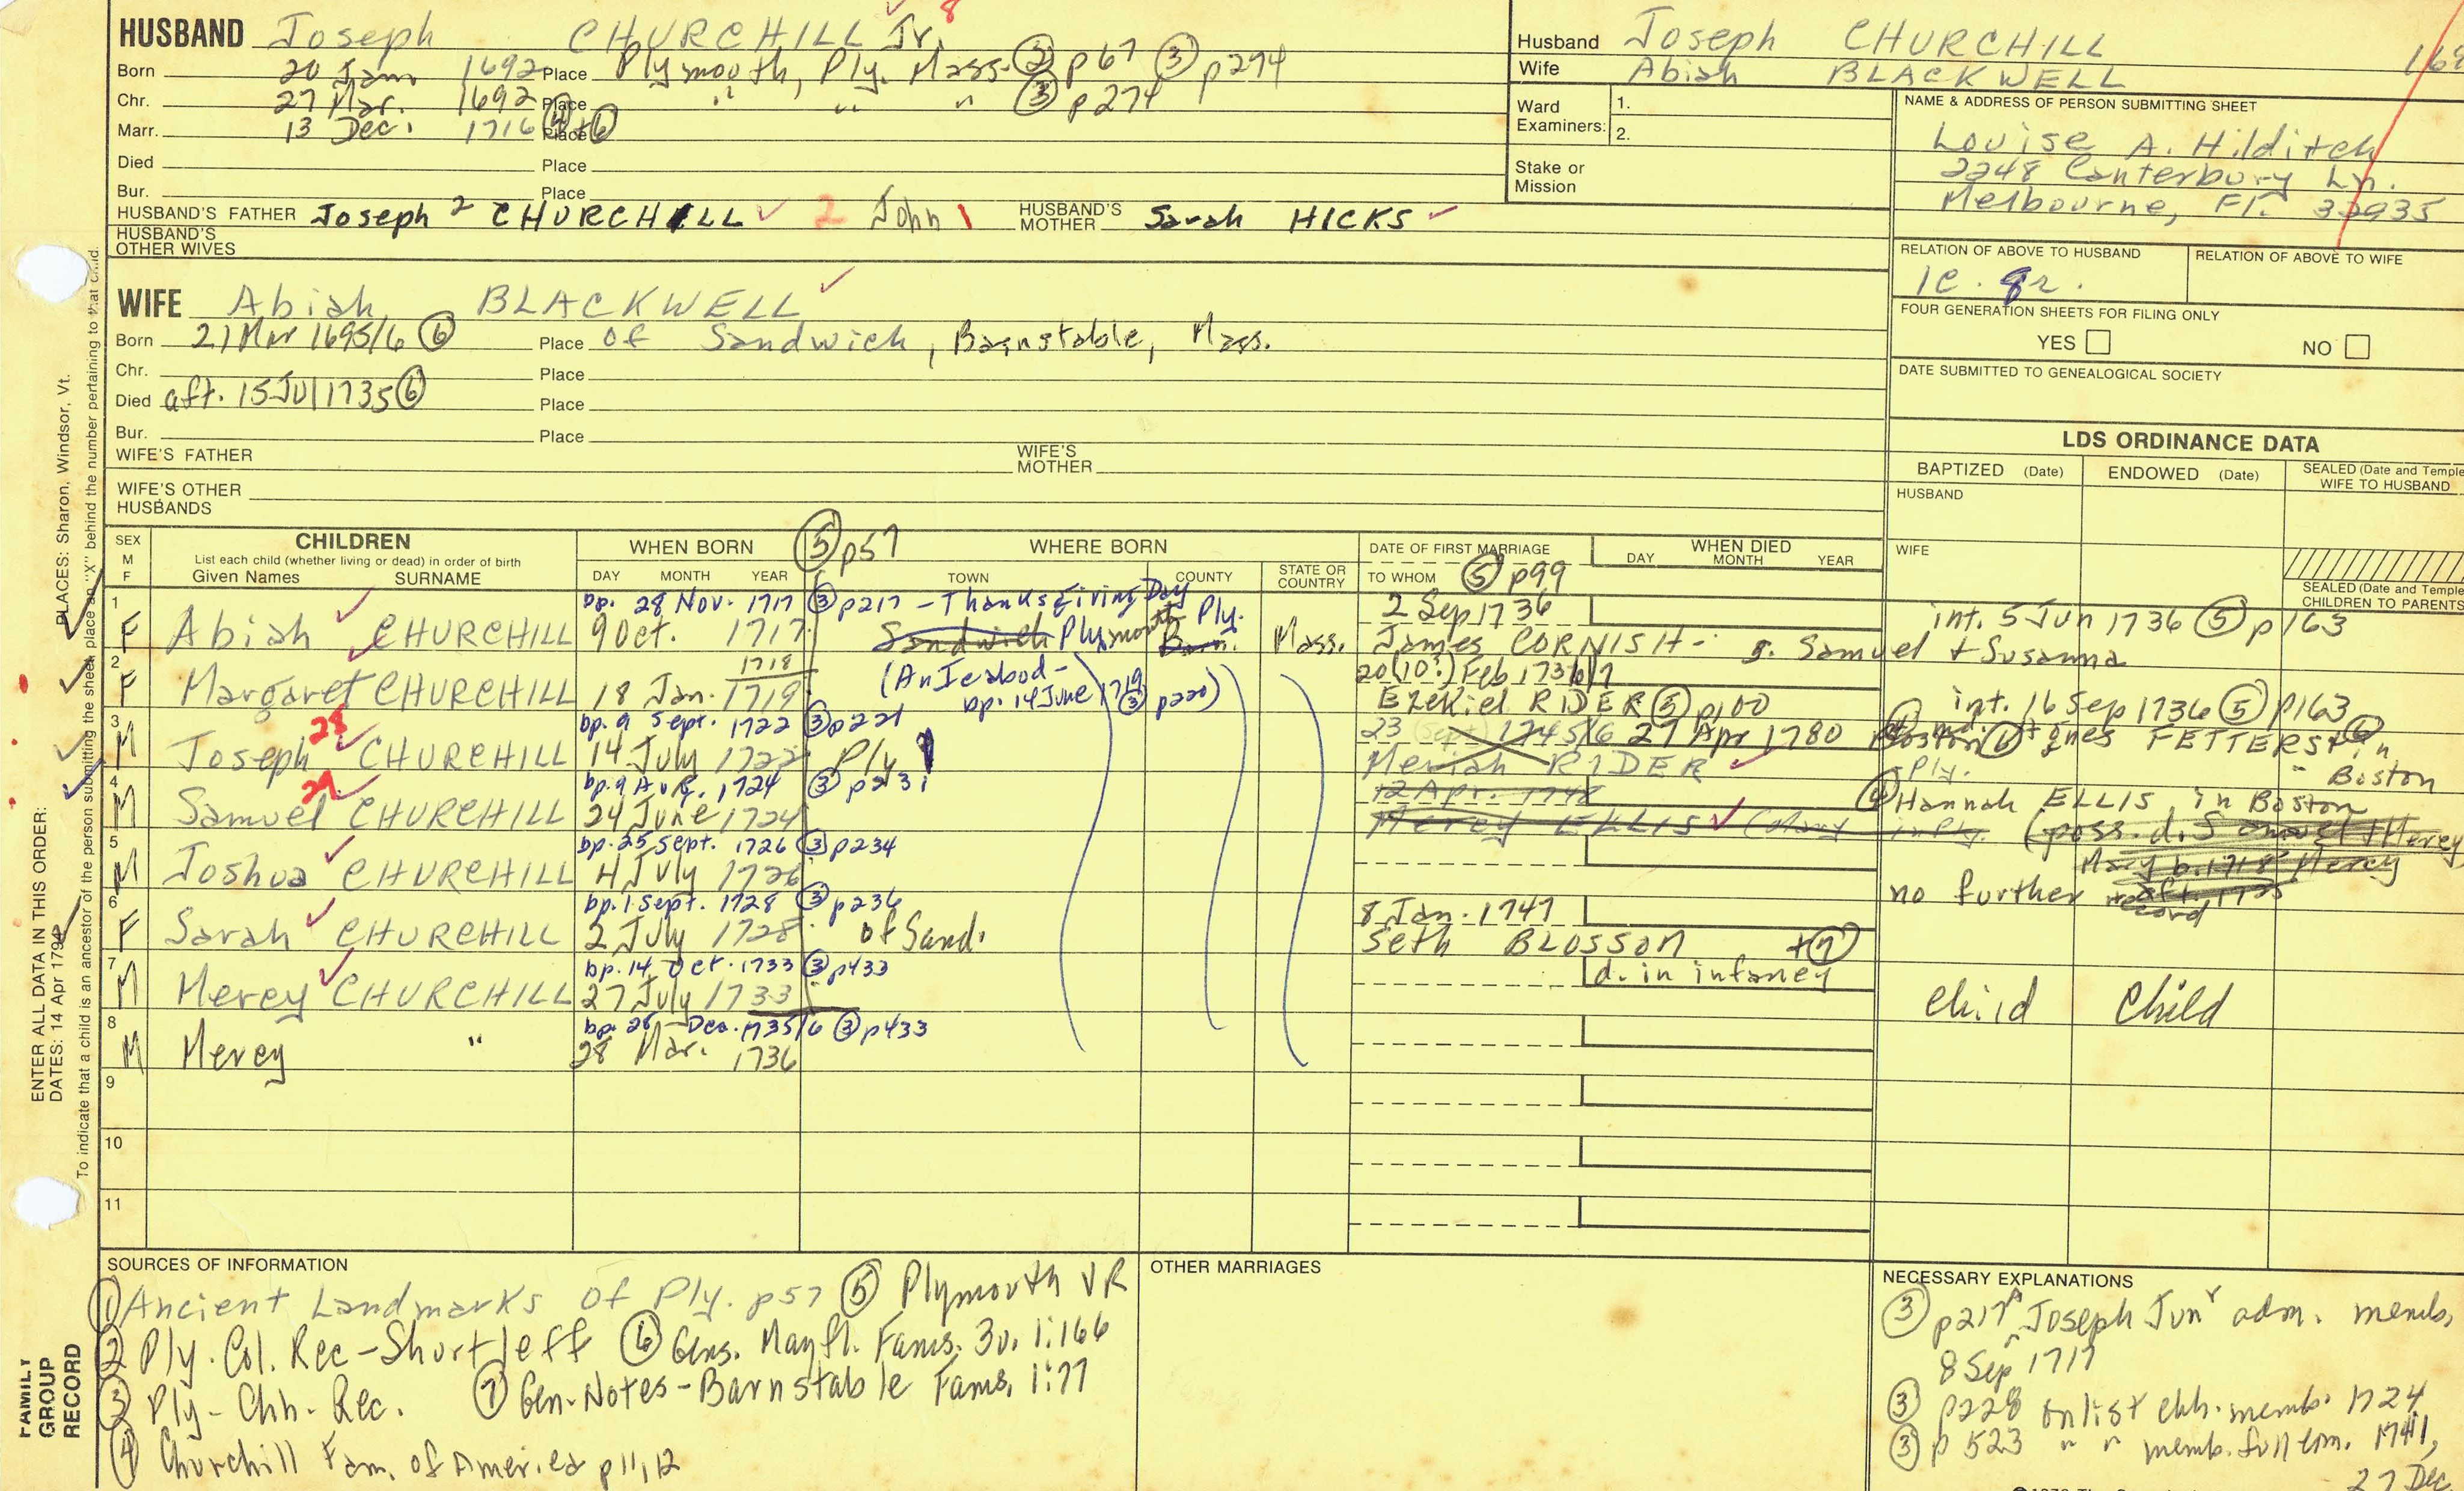 HUSBAND Joseph CHURCHILL Jr. 8
Born 20 Jan 1692 Place Plymouth, Ply. Mass. ② p67 ③ p274
Chr. 27 Mar. 1692 Place " " " ③ p274
Marr. 13 Dec. 1716 ④+⑥ Place
Died Place
Bur. Place
HUSBAND'S FATHER Joseph 2 CHURCHILL 2 John 1 HUSBAND'S MOTHER Sarah HICKS
HUSBAND'S OTHER WIVES
Husband Joseph CHURCHILL
Wife Abiah BLACKWELL
Ward Examiners: 1.
2.
Stake or Mission
NAME & ADDRESS OF PERSON SUBMITTING SHEET
Louise A. Hilditch
2248 Canterbury Ln.
Melbourne, Fl. 32935
RELATION OF ABOVE TO HUSBAND RELATION OF ABOVE TO WIFE
1c. 9r.
FOUR GENERATION SHEETS FOR FILING ONLY
YES NO
DATE SUBMITTED TO GENEALOGICAL SOCIETY
WIFE Abiah BLACKWELL
Born 21 Mar 1695/6 ⑥ Place of Sandwich, Barnstable, Mass.
Chr. Place
Died aft. 15 Jul 1735 ⑥ Place
Bur. Place
WIFE'S FATHER WIFE'S MOTHER
WIFE'S OTHER HUSBANDS
LDS ORDINANCE DATA
BAPTIZED (Date) ENDOWED (Date) SEALED (Date and Temple) WIFE TO HUSBAND
HUSBAND
WIFE
SEALED (Date and Temple) CHILDREN TO PARENTS
SEX M F CHILDREN WHEN BORN ⑤ p57 WHERE BORN DATE OF FIRST MARRIAGE WHEN DIED
List each child (whether living or dead) in order of birth
Given Names SURNAME DAY MONTH YEAR TOWN COUNTY STATE OR COUNTRY TO WHOM ⑤ p99 DAY MONTH YEAR
1 bp. 28 Nov. 1717 ③ p217 - Thanksgiving Day 2 Sep 1736 int. 5 Jun 1736 ⑤ p163
F Abiah CHURCHILL 9 Oct. 1717 Sandwich Plymouth Barn. Ply. Mass. James CORNISH - s. Samuel + Susanna
2 1718 (An Icabod - bp. 14 June 1719 ③ p220) 20 (10?) Feb 1736/7
F Margaret CHURCHILL 18 Jan. 1719 Ezekiel RIDER ⑤ p100 int. 16 Sep 1736 ⑤ p163
3 28 bp. 9 Sept. 1722 ③ p221 23 (Sept) 1745/6 27 Apr 1780 Boston ⑥ Agnes FETTERS in Boston
M Joseph CHURCHILL 14 July 1722 Ply Meriah RIDER Ply.
4 29 bp. 9 Aug. 1724 ③ p231 12 Apr. 1748 ④ Hannah ELLIS, in Boston
M Samuel CHURCHILL 24 June 1724 Mercy ELLIS (Mary in Ply. (poss. d. Samuel + Mercy
Mary b. 1718 Mercy
5 bp. 25 Sept. 1726 ③ p234
M Joshua CHURCHILL 4 July 1726 no further record aft. 1725
6 bp. 1 Sept. 1728 ③ p236 8 Jan. 1747
F Sarah CHURCHILL 2 July 1728 of Sand. Seth BLOSSOM + ⑦
7 bp. 14 Oct. 1733 ③ p433 d. in infancy
M Mercy CHURCHILL 27 July 1733 Child Child
8 bp. 28 Dec. 1735/6 ③ p433
M Mercy " 28 Mar. 1736
9
10
11
SOURCES OF INFORMATION
① Ancient Landmarks of Ply. p57 ⑤ Plymouth VR
② Ply. Col. Rec - Shurtleff ⑥ Gens. Mayfl. Fams. 3v. 1:166
③ Ply - Chh - Rec. ⑦ Gen-Notes-Barnstable Fams. 1:77
④ Churchill Fam. of America p11,12
OTHER MARRIAGES
NECESSARY EXPLANATIONS
③ p217 Joseph Junr adm. memb. 8 Sep 1717
③ p228 on list chh. memb. 1724
③ p 523 " " memb. full com. 1741, 27 Dec
ENTER ALL DATA IN THIS ORDER:
DATES: 14 Apr 1794 PLACES: Sharon, Windsor, Vt.
To indicate that a child is an ancestor of the person submitting the sheet, place an "X" behind the number pertaining to that child.
FAMILY GROUP RECORD